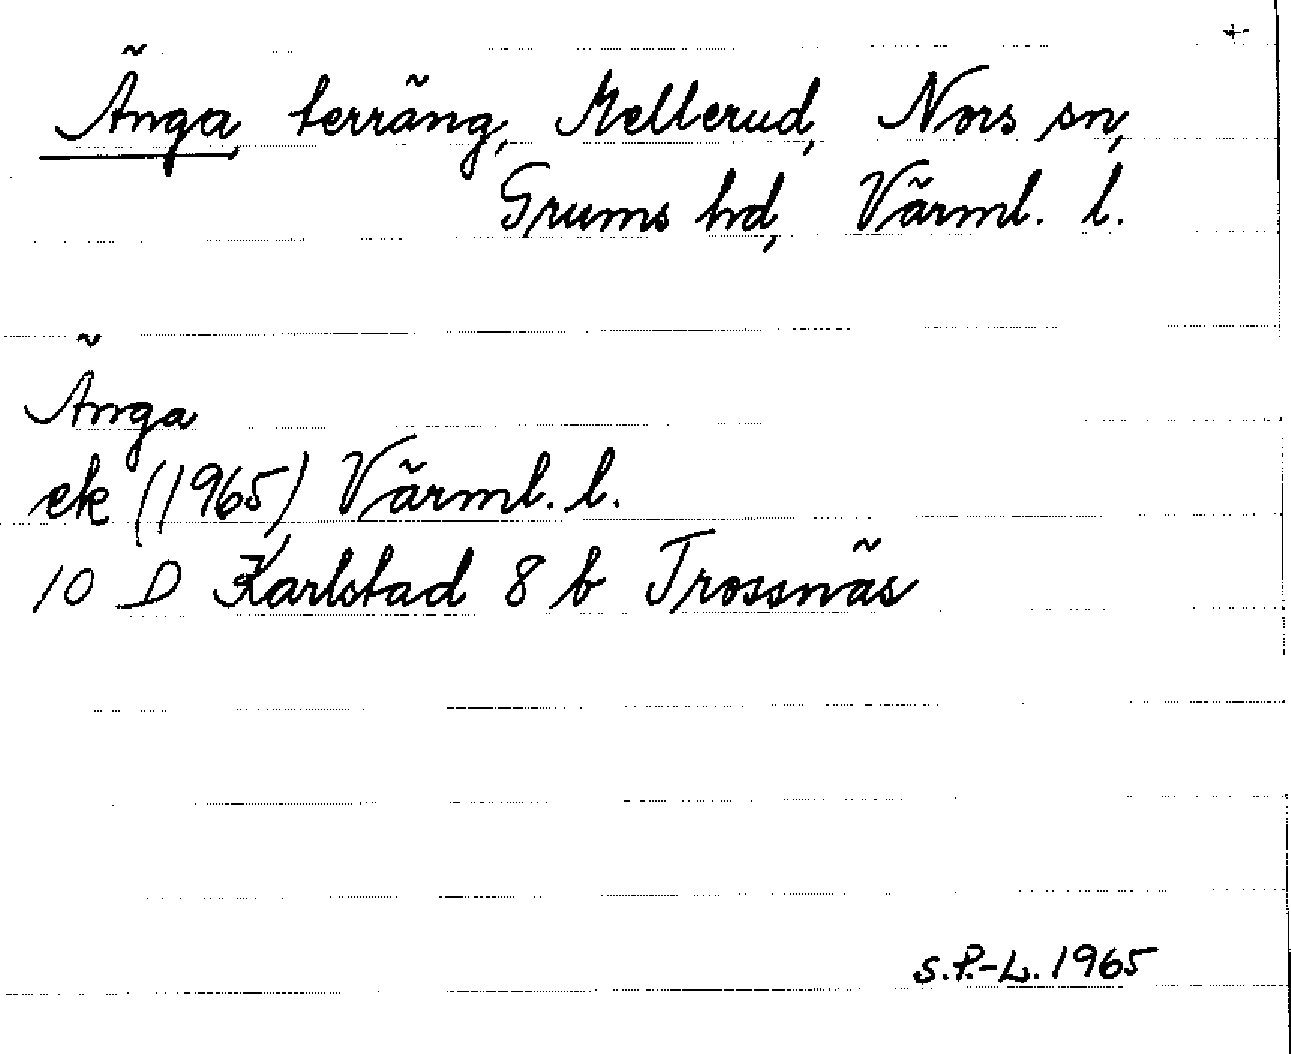 +
Änga, terräng, Mellerud, Nors sn,
Grums hd, Värml. l.
Änga
ek (1965) Värml. l.
10 D Karlstad 8 b Trossnäs
S.P.-L. 1965